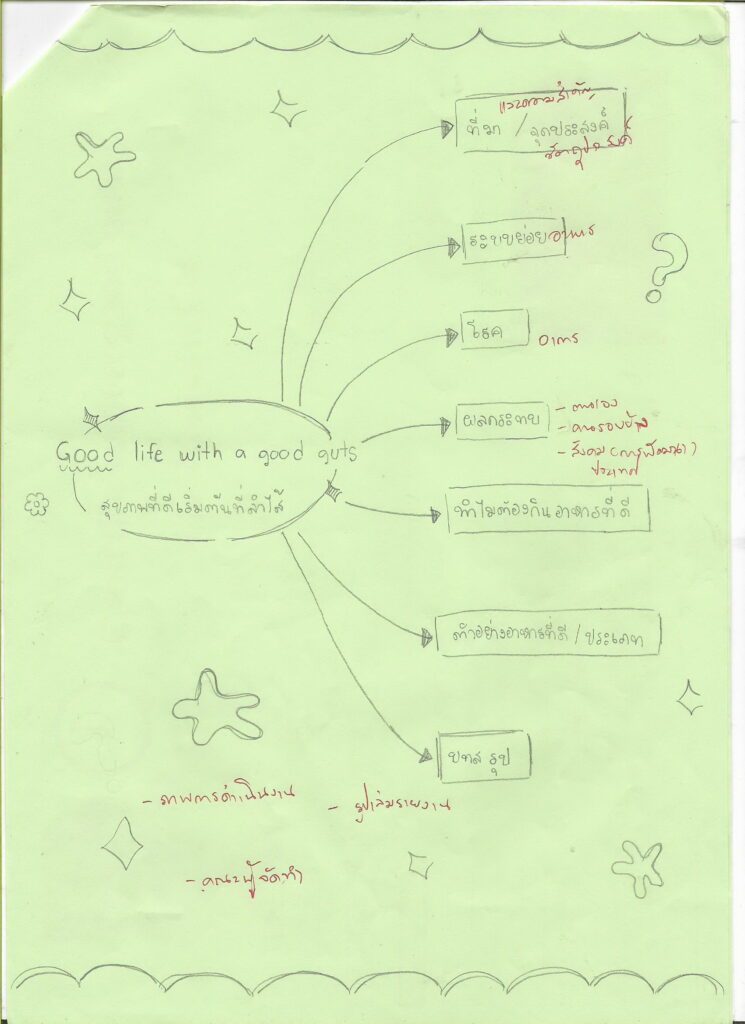 และความสำคัญ
ที่มา / จุดประสงค์
วัตถุประสงค์
ระบบย่อยอาหาร
โรค
อาการ
ผลกระทบ
- ตนเอง
- คนรอบข้าง
- สังคม (การพัฒนา)
ประเทศ
Good life with a good guts
สุขภาพที่ดีเริ่มต้นที่ลำไส้
ทำไมต้องกินอาหารที่ดี
ตัวอย่างอาหารที่ดี / ประเภท
บทสรุป
- ภาพการดำเนินงาน
- รูปเล่มรายงาน
- คณะผู้จัดทำ